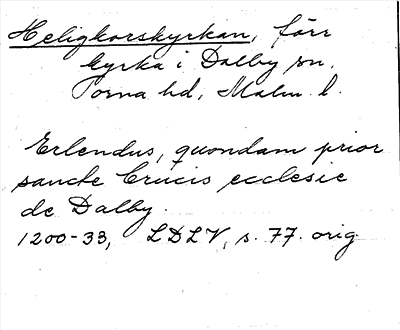 Heligkorskyrkan, förr
kyrka i Dalby sn,
Torna hd, Malm. l.
Erlendus, quondam prior
sancte Crucis ecclesie
de Dalby.
1200-33, LDLV, s. 77. orig.